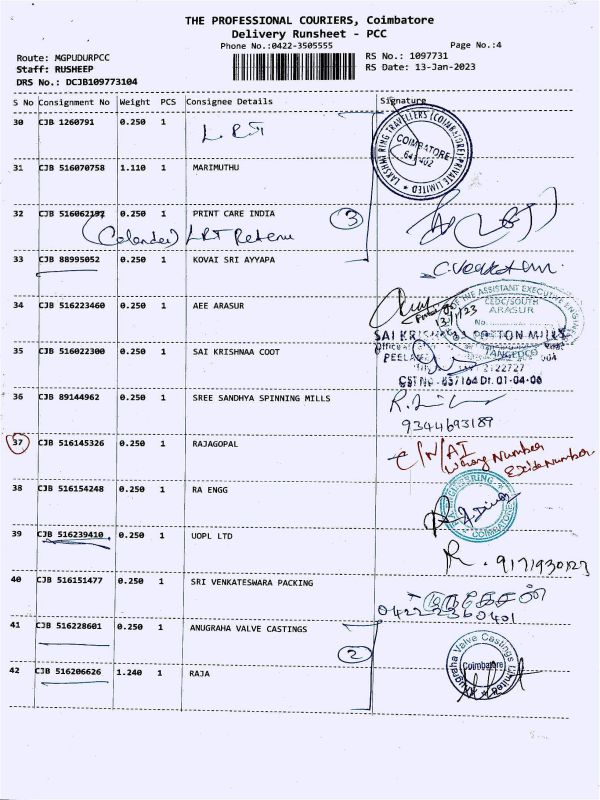 THE PROFESSIONAL COURIERS, Coimbatore
Delivery Runsheet - PCC
Phone No.:0422-3505555 Page No.:4
Route: MGPUDURPCC RS No.: 1097731
Staff: RUSHEEP RS Date: 13-Jan-2023
DRS No.: DCJB109773104
S No Consignment No Weight PCS Consignee Details Signature
30 CJB 1260791 0.250 1
LAKSHMI RING TRAVELLERS (COIMBATORE) PRIVATE LIMITED
COIMBATORE
641 402
31 CJB 516070758 1.110 1 MARIMUTHU
32 CJB 516062192 0.250 1 PRINT CARE INDIA
3
(Calander) LRT Return
33 CJB 88995052 0.250 1 KOVAI SRI AYYAPA
C. Venkatam
34 CJB 516223460 0.250 1 AEE ARASUR
13/1/23
OF THE ASSISTANT EXECUTIVE ENGINEER
CEDC/SOUTH
ARASUR
No.
TANGEDCO
35 CJB 516022300 0.250 1 SAI KRISHNAA COOT
COTTON MILLS
CST NO. 837164 Dt. 01-04-06
36 CJB 89144962 0.250 1 SREE SANDHYA SPINNING MILLS
9344693189
37 CJB 516145326 0.250 1 RAJAGOPAL
C/N/A
Wrong Number
38 CJB 516154248 0.250 1 RA ENGG
COIMBATORE
39 CJB 516239410 0.250 1 UOPL LTD
40 CJB 516151477 0.250 1 SRI VENKATESWARA PACKING
முருகேசன்
0422 2360401
41 CJB 516228601 0.250 1 ANUGRAHA VALVE CASTINGS
2
Anugraha Valve Castings Limited
Coimbatore
42 CJB 516206626 1.240 1 RAJA